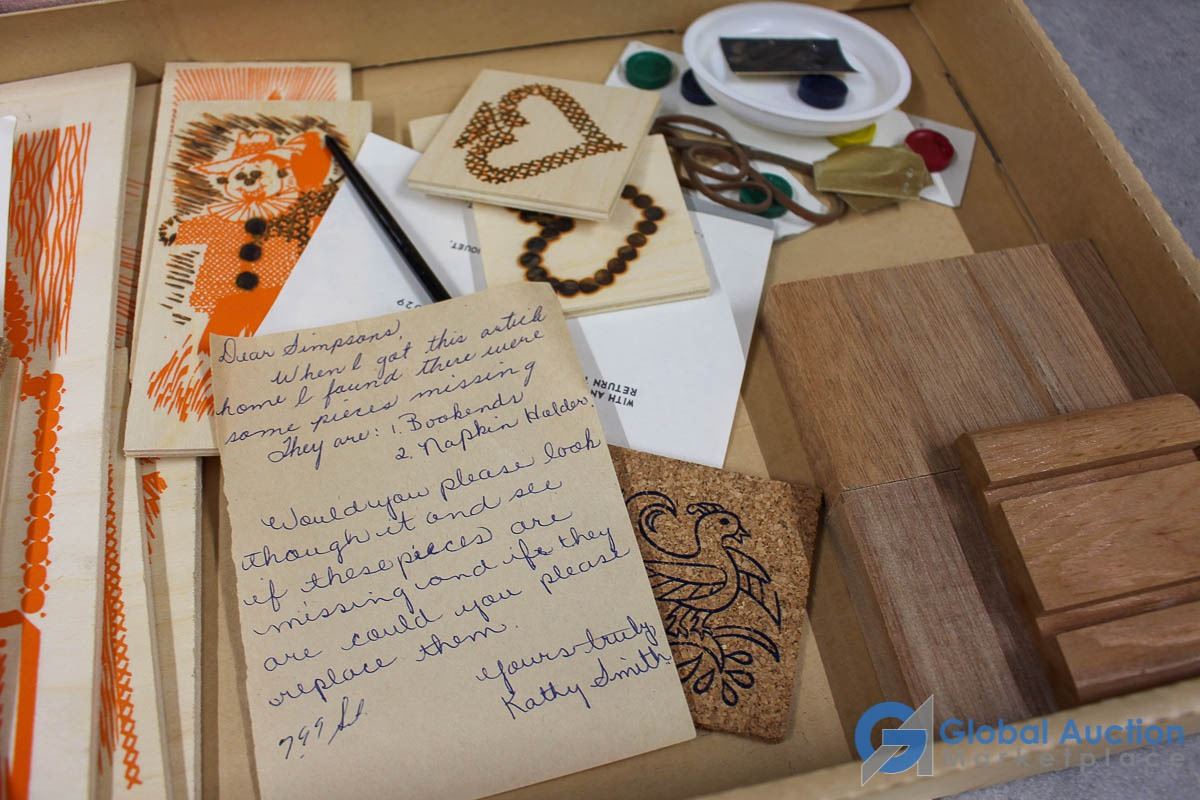 Dear Simpsons,
When I got this article
home I found there were
some pieces missing
They are: 1. Bookends
2. Napkin Holder.
Would you please look
though it and see
if these pieces are
missing and if they
are could you please
replace them.
Yours truly
Kathy Smith.
QUET.
029
WITH AN
RETURN
Global Auction
Marketplace